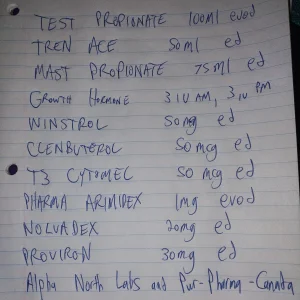 TEST PROPIONATE 100ml evod
TREN ACE 50ml ed
MAST PROPIONATE 75ml ed
Growth Hormone 3iu AM, 3iu PM
WINSTROL 50mg ed
CLENBUTEROL 50mcg ed
T3 CYTOMEL 50mcg ed
PHARMA ARIMIDEX 1mg evod
NOLVADEX 20mg ed
PROVIRON 30mg ed
Alpha North Labs and Pur-Pharma-Canada